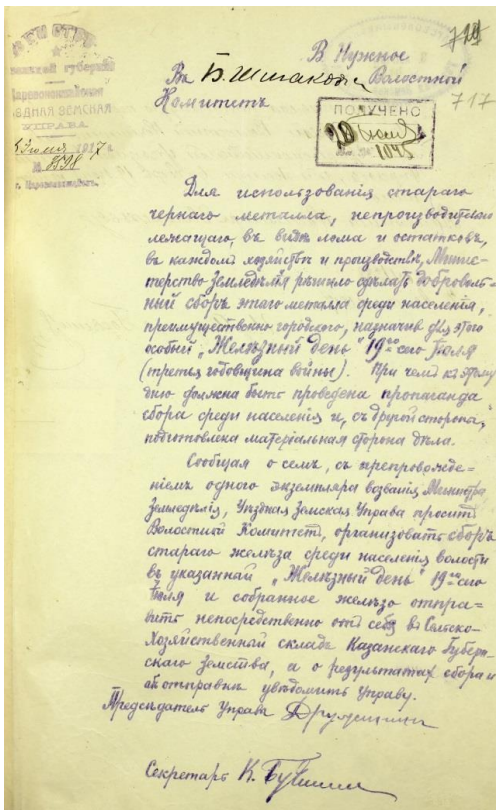 729
717
В Нужное
В Б. Шигаков Волостной
Комитетъ
УѢЗДНАЯ ЗЕМСКАЯ
УПРАВА
Іюля 1917
№ 8598
г. Царевококшайскъ
ПОЛУЧЕНО
20 Іюля
Вх. № 1045
Для использованія стараго
чернаго металла, непроизводительно
лежащаго, въ видѣ лома и остатковъ,
въ каждомъ хозяйствѣ и производствѣ, Минис-
терство Земледѣлія рѣшило сдѣлать доброволь-
ный сборъ этаго металла среди населенія,
преимущественно городского, назначив для этого
особый „Желѣзный день" 19го сего Іюля
(третья годовщина войны). При чемъ къ этому
дню должна быть проведена пропаганда
сбора среди населенія и, съ другой стороны,
подготовлена матеріальная сторона дѣла.
Сообщая о семъ, съ препровожде-
ніемъ одного экземпляра воззванія Министра
Земледѣлія, Уѣздная Земская Управа проситъ
Волостной Комитетъ, организовать сборъ
стараго желѣза среди населенія волости
въ указанный „Желѣзный день" 19го сего
Іюля и собранное желѣзо отпра-
вить непосредственно отъ себя въ Сельско-
Хозяйственный складъ Казанскаго Губерн-
скаго Земства, а о результатах сбора и
отправкѣ увѣдомить Управу.
Предсѣдатель Управы
Секретарь К.